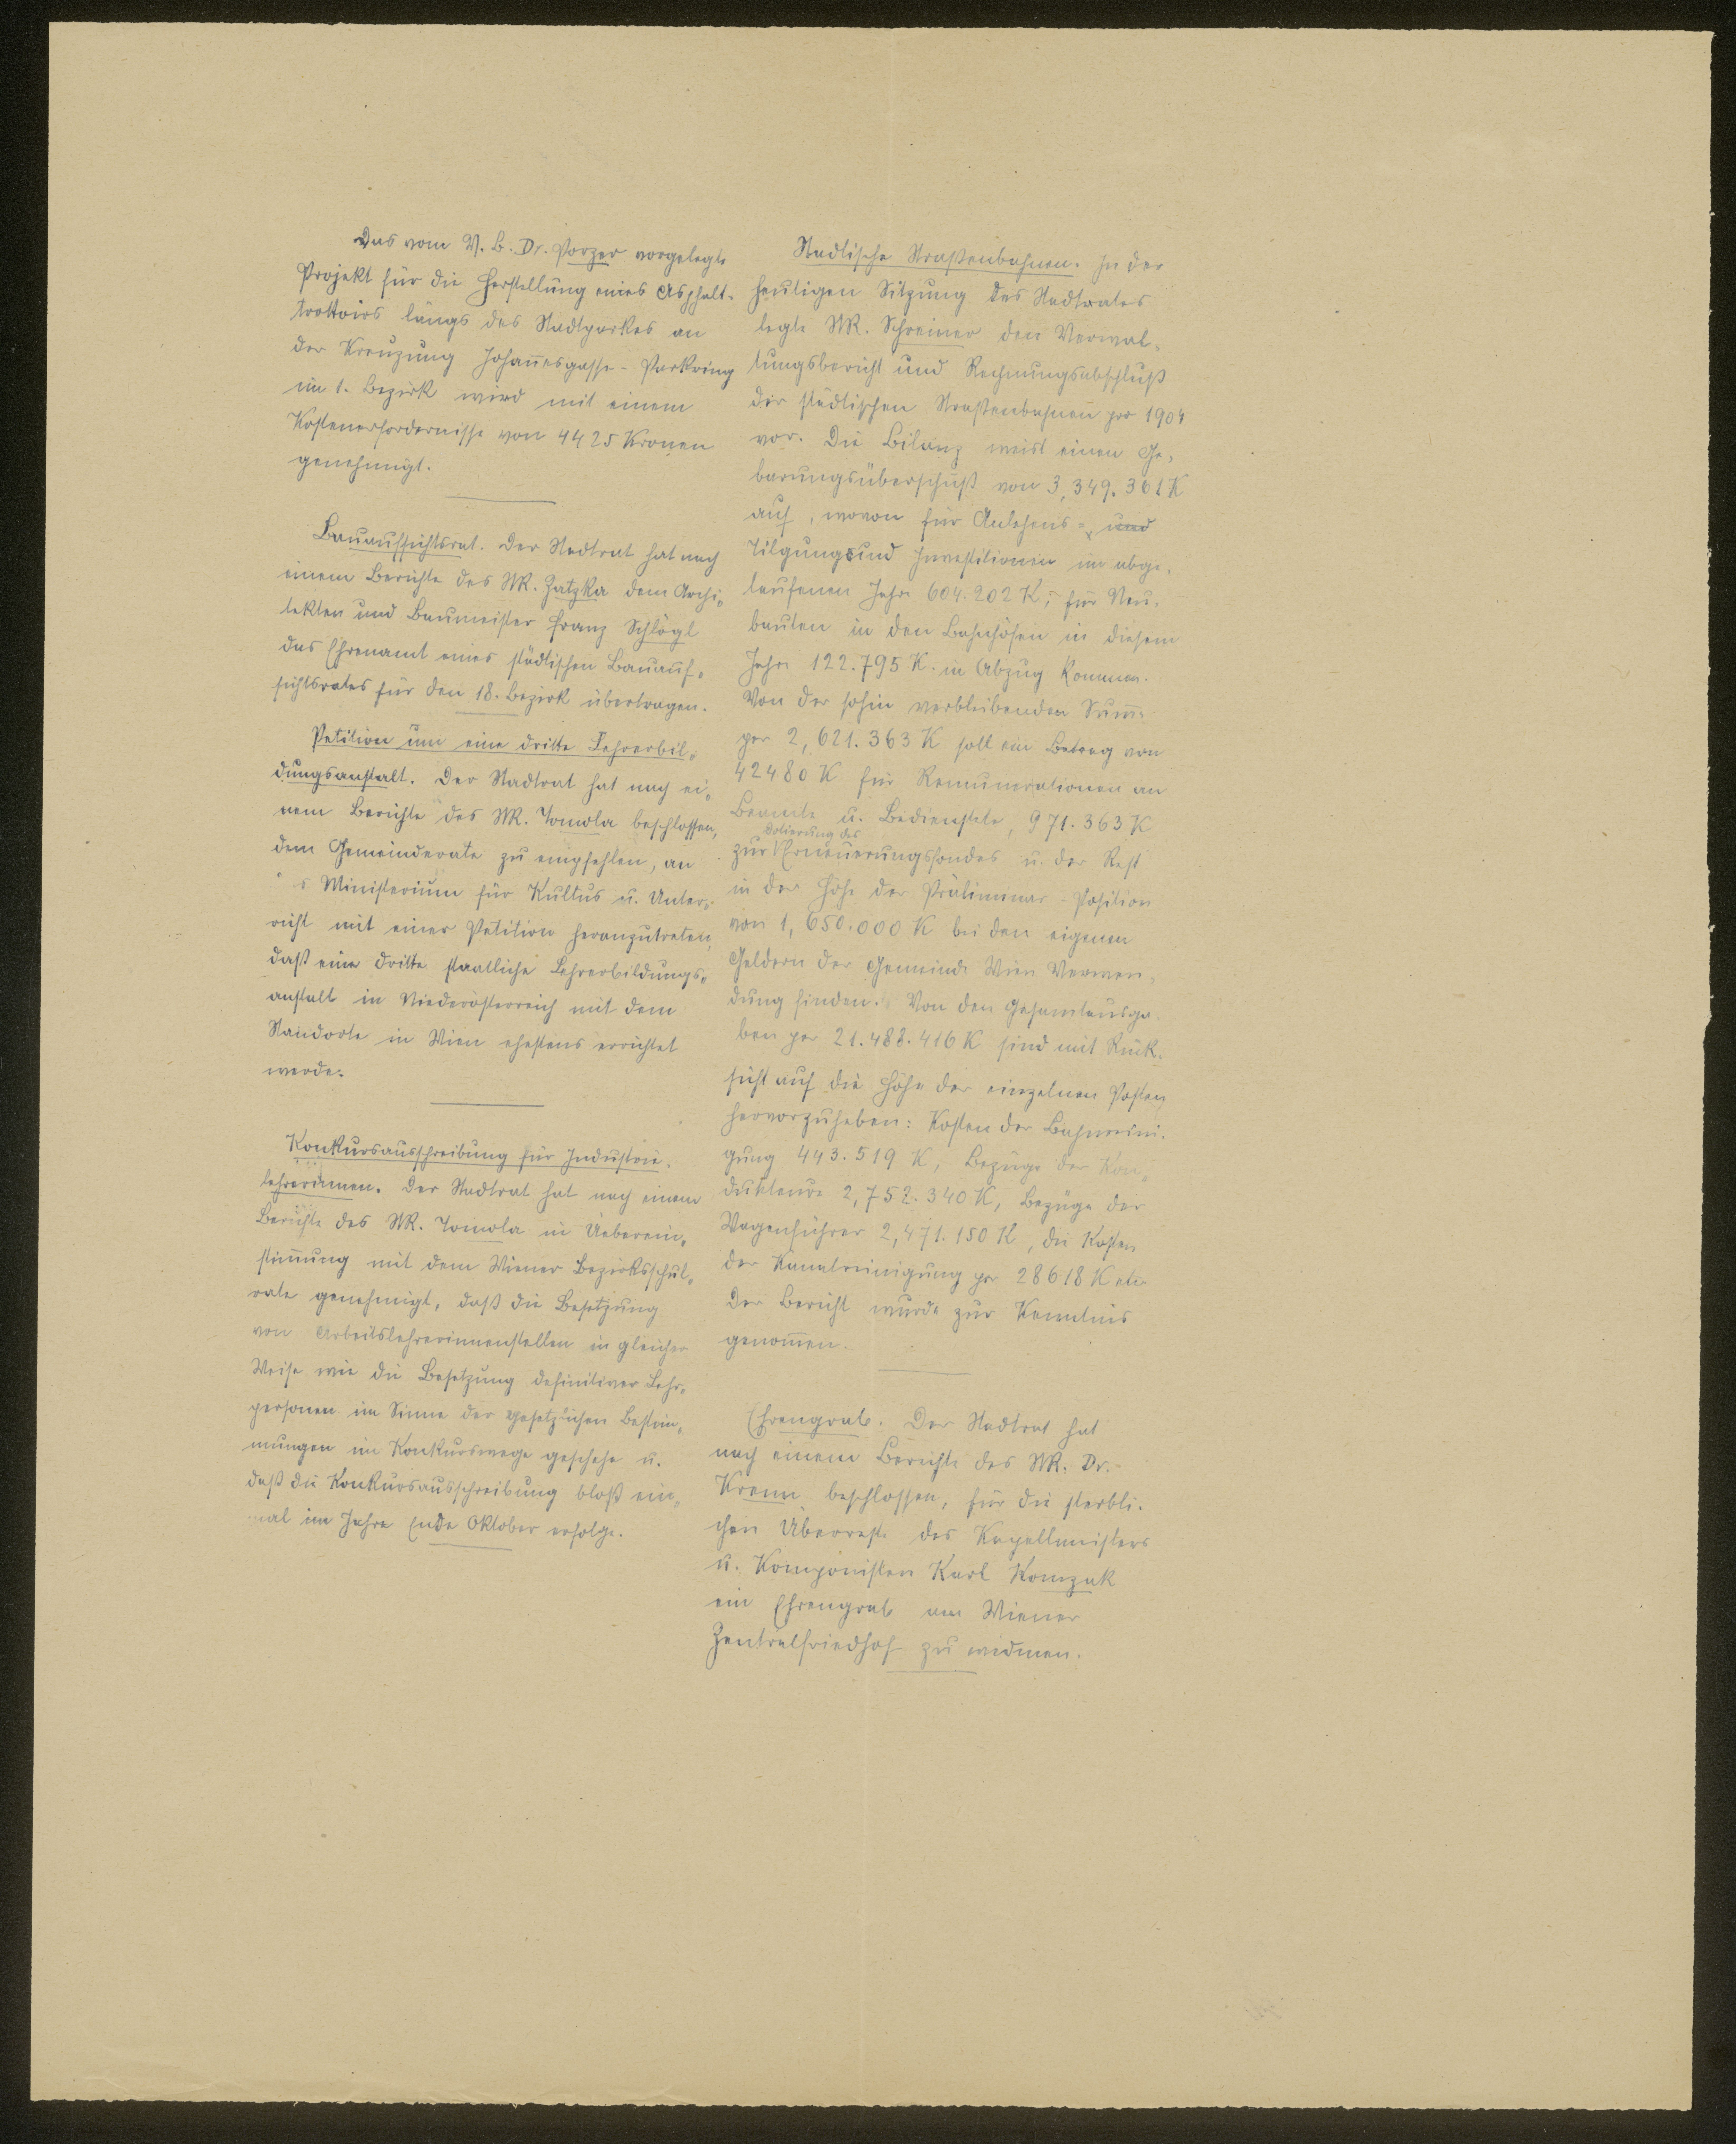 Das vom V. B. Dr. Porzer vorgelegte
Projekt für die Herstellung eines Asphalt-
trottoirs längs des Stadtparkes an
der Kreuzung Johannesgasse - Parkring
im 1. Bezirk wird mit einem
Kostenerfordernisse von 4425 Kronen
genehmigt.
Bauaufsichtsrat. Der Stadtrat hat nach
einem Berichte des StR. Zatzka dem Archi-
tekten und Baumeister Franz Schlögl
das Ehrenamt eines städtischen Bauauf-
sichtsrates für den 18. Bezirk übertragen.
Petition um eine dritte Lehrerbil-
dungsanstalt. Der Stadtrat hat nach ei-
nem Berichte des StR. Tomola beschlossen,
dem Gemeinderate zu empfehlen, an
s Ministerium für Kultus u. Unter-
richt mit einer Petition heranzutreten,
daß eine dritte staatliche Lehrerbildungs-
anstalt in Niederösterreich mit dem
Standorte in Wien ehestens errichtet
werde.
Konkursausschreibung für Industrie-
lehrerinnen. Der Stadtrat hat nach einem
Berichte des StR. Tomola in Ueberein-
stimmung mit dem Wiener Bezirksschul-
rate genehmigt, daß die Besetzung
von Arbeitslehrerinnenstellen in gleicher
Weise wie die Besetzung definitiver Lehr-
personen im Sinne der gesetzlichen Bestim-
mungen im Konkurswege geschehe u.
daß die Konkursausschreibung bloß ein-
mal im Jahre Ende Oktober erfolge.
Städtische Straßenbahnen. In der
heutigen Sitzung des Stadtrates
legte StR. Schreiner den Verwal-
tungsbericht und Rechnungsabschluß
der städtischen Straßenbahnen pro 1904
vor. Die Bilanz weist einen Ge-
barungsüberschuß von 3,349.361 K
auf, wovon für Anlehens- und
Tilgung und Investitionen im abge-
laufenen Jahre 604.202 K, für Neu-
bauten in den Bahnhöfen in diesem
Jahre 122.795 K. in Abzug kommen.
Von der sohin verbleibenden Summe
per 2,621.363 K soll ein Betrag von
42480 K für Remunerationen an
Beamte u. Bedienstete, 971.363 K
Dotierung des
zur Erneuerungsfondes u. der Rest
in der Höhe der Präliminar-Position
von 1,650.000 K bei den eigenen
Geldern der Gemeinde Wien Verwen-
dung finden. Von den Gesamtausga-
ben per 21.488.416 K sind mit Rück-
sicht auf die Höhe der einzelnen Posten
hervorzuheben: Kosten der Bahnreini-
gung 443.519 K, Bezüge der Kon-
dukteure 2,752.340 K, Bezüge der
Wagenführer 2,471.150 K, die Kosten
der Kanalreinigung per 28618 K etc.
Der Bericht wurde zur Kenntnis
genommen.
Ehrengrab. Der Stadtrat hat
nach einem Berichte des StR. Dr.
Krenn beschlossen, für die sterbli-
chen Überreste des Kapellmeisters
u. Komponisten Karl Komzak
ein Ehrengrab am Wiener
Zentralfriedhof zu widmen.